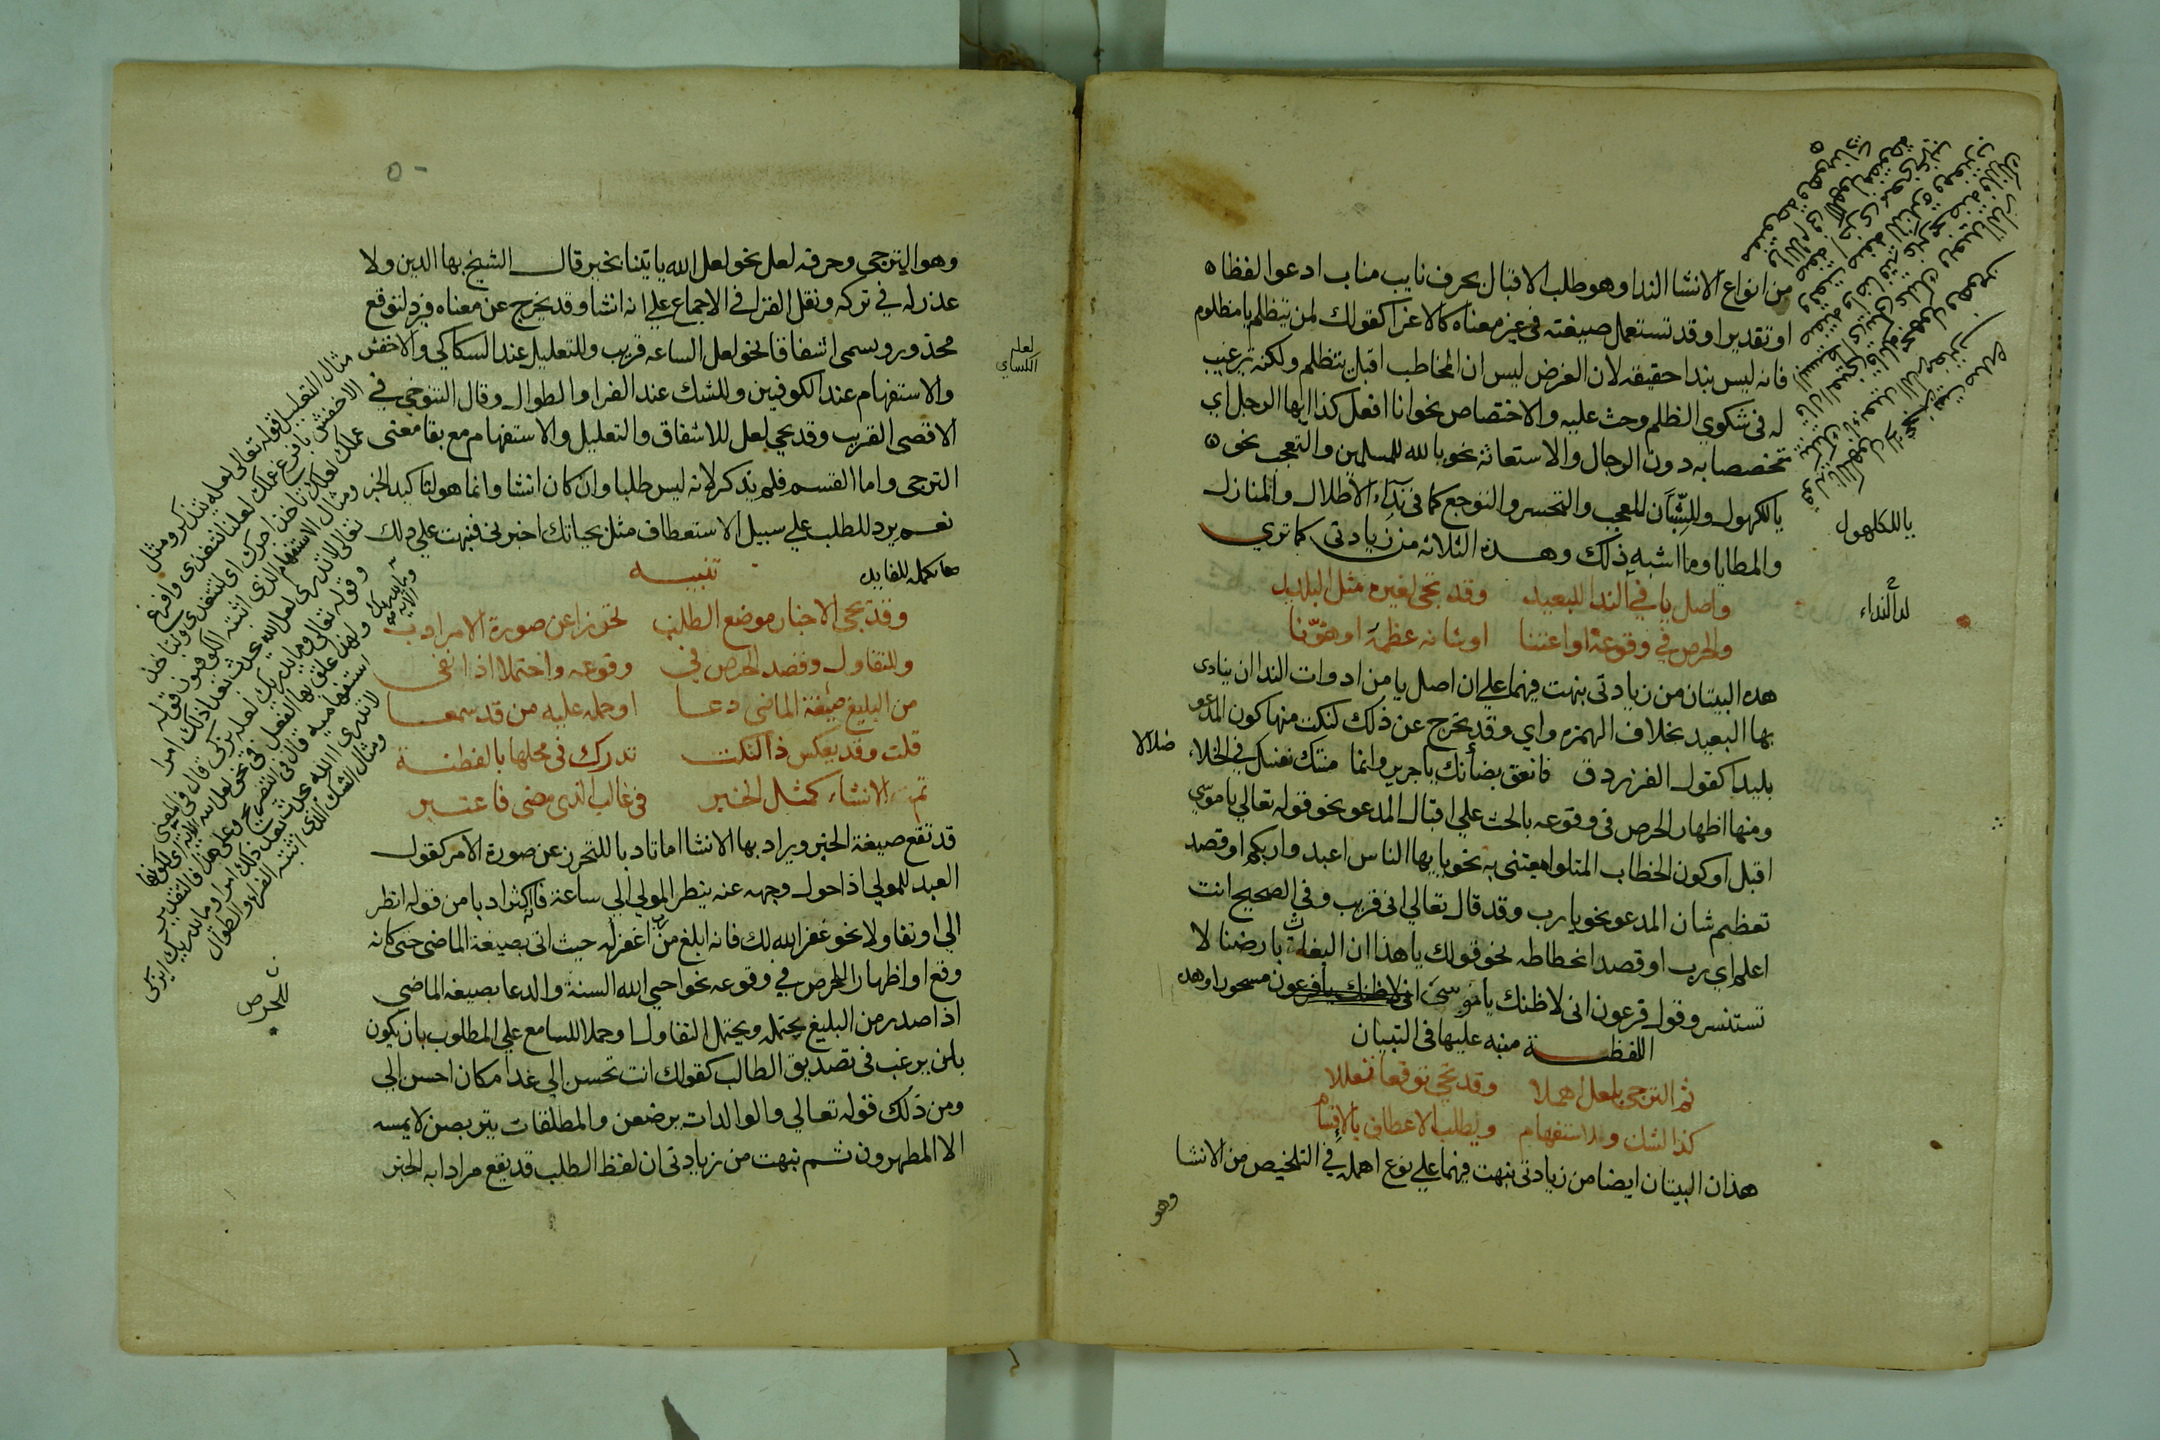 من انواع الانشا الندا وهو طلب الاقبال بحرف نايب مناب ادعو الفظا ه
او تقديرا وقد تستعمل صيغته في غير معناه كالاغرا كقولك لمن يتظلم يا مظلوم
فانه ليس بندا حقيقه لان الغرض ليس ان المخاطب اقبل يتظلم ولكنه ترغيب
له في شكوي الظلم وحث عليه والاختصاص نحو انا افعل كذا ايها الرجل اي
تخصصا به دون الرجال والاستغاثة نحو يا لله للمسلمين والتعجب نحو ه
يا للكهول وللشبان للعجب والتحسر والتوجع كما في نداء الاطلال والمنازل
والمطايا وما اشبه ذلك وهذه الثلاثه من زيادتي كما تري
واصل يا في الندا للبعيد وقد تجي لغيره مثل البليد
والحرص في وقوعه او اعتنا او شانه عظمه او هونا
هذه البيتان من زيادتي نبهت فيهما علي ان اصل يا من ادوات الندا ان ينادى
بها البعيد بخلاف الهمزه واي وقد تخرج عن ذلك لنكت منها كون المدعو
بليدا كقول الفرزدق فانعق بضأنك يا جرير وانما منتك نفسك في الخلاء
ضلالا
ومنها اظهار الحرص في وقوعه بالحث علي اقبال المدعو نحو قوله تعالي يا موسي
اقبل او كون الخطاب المتلو معتنى به نحو يا يها الناس اعبدوا ربكم او قصد
تعظيم شان المدعو نحو يا رب وقد قال تعالي اني قريب وفي الصحيح انت
اعلم اي رب او قصد انحطاطه نحو قولك يا هذا ان البغاث بارضنا لا
تستنسر وقول فرعون انى لاظنك يا موسى اني لاظنك يا فرعون مسحورا وهذه
اللفظة منبه عليها في التبيان
ثم الترجي بلعل اهملا وقد تجي توقعا تعللا
كذا لشك ولاستفهام ويطلب الاعطاف بالاقسام
هذان البيتان ايضا من زيادتي نبهت فيهما علي نوع اهمله في التلخيص من الانشا
وهو
يا للكهول
للنداء
وهو الترجي وحرفه لعل نحو لعل الله ياتينا بخير قال الشيخ بها الدين ولا
عذر له في تركه ونقل القرافي الاجماع علي انه انشا وقد يخرج عن معناه فيرد لتوقع
محذور ويسمى اشفاقا نحو لعل الساعه قريب وللتعليل عند السكاكي والاخفش
والاستفهام عند الكوفيين وللشك عند الفرا والطوال وقال التنوخي في
الاقصى القريب وقد يجي لعل للاشفاق والتعليل والاستفهام مع بقا معنى
الترجى واما القسم فلم يذكر لانه ليس طلبا وان كان انشا وانما هو لتاكيد الخبر
نعم يرد للطلب علي سبيل الاستعطاف مثل بحياتك اخبرني فنبهت علي ذلك
تكمله للفايده تنبيه
وقد يجي الاخبار موضع الطلب تحرزا عن صورة الامر ادب
وللتفاول وقصد الحرص في وقوعه واحتملا اذا تفى
من البليغ صيغة الماضي دعا او حمله عليه من قد سمعا
قلت وقد يعكس ذا لنكت تدرك في محلها بالفطنة
ثم الانشاء كمثل الخبر في غالب الذي مضى فاعتبر
قد تقع صيغة الخبر ويراد بها الانشا اما تادبا للتحرز عن صورة الامر كقول
العبد للمولي اذا حول وجهه عنه ينظر المولي الي ساعة فانه اكثر ادبا من قوله انظر
الي او تفاولا نحو غفر الله لك فانه ابلغ من رب اغفر له حيث اتى بصيغة الماضي حتى كانه
وقع او اظهار الحرص في وقوعه نحو احيي الله السنة والدعا بصيغه الماضي
اذا صدر من البليغ يحتمله ويحتمل التفاول او حملا للسامع علي المطلوب بان يكون
بلن يرغب في تصديق الطالب كقولك انت تحسن الي غدا مكان احسن الي
ومن ذلك قوله تعالي والوالدات يرضعن والمطلقات يتربصن لا يمسه
الا المطهرون ثم نبهت من زيادتى ان لفظ الطلب قد يقع مرادا به الخبر
لعله
الكساي
مثال التعليل قوله تعالى لعله يتذكر ومثل
الاخفش بافرغ عملك لعلنا نتغدى وافرغ
عملك لعلك تاخذ اجرك اي لنتغدى ولتاخذ
ومثال الاستفهام الذي اثبته الكوفيون قوله
تعالى لا تدري لعل الله يحدث بعد ذلك امرا
وقوله تعالى وما يدريك لعله يزكى قال في المغني
ولهذا علق بها الفعل في نحو لعل الله الاية اي لكونها
استفهامية قال في التصريح وعلى هذا فالتقدير
لا تدري الله يحدث بعد ذلك امرا وما يدريك ايزكى
ومثال الشك الذي اثبته الفراء والطوال
للحرص